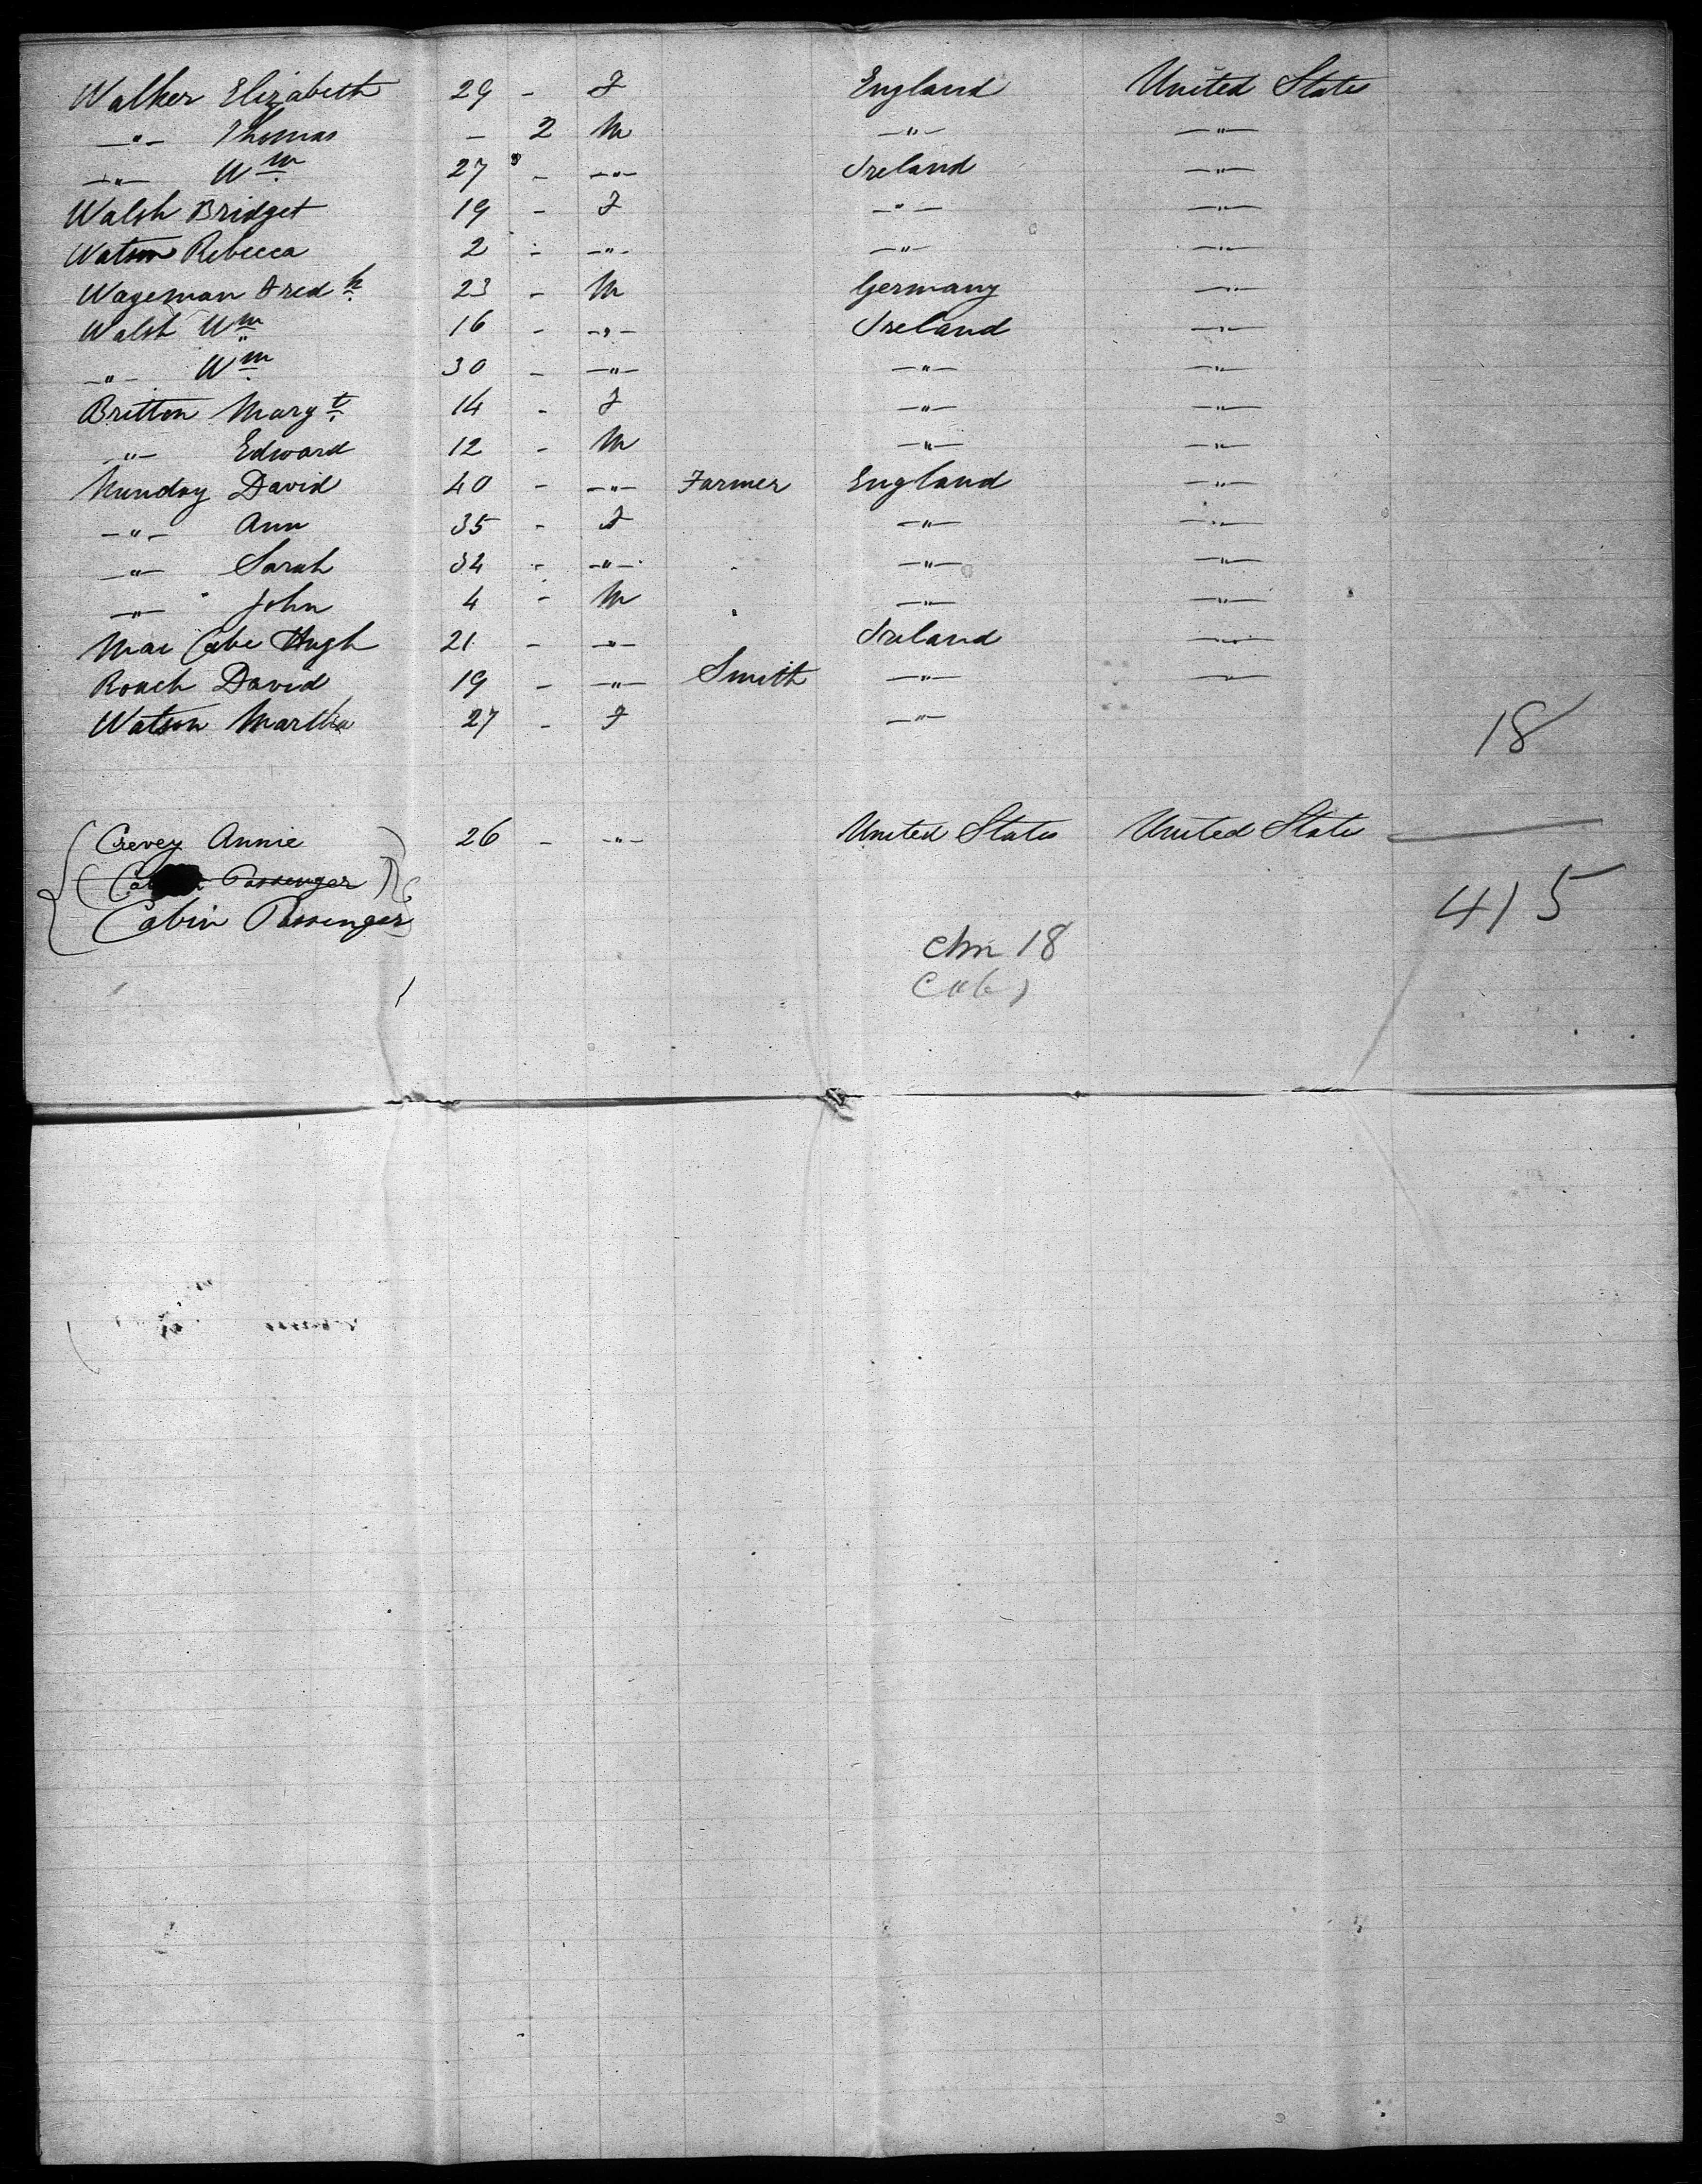 Walker Elizabeth 29 - F England United States
-"- Thomas - 2 M -"- -"-
-"- Wm 27 - -"- Ireland -"-
Walsh Bridget 19 - F -"- -"-
Watson Rebecca 2 - -"- -"- -"-
Wageman Fredk 23 - M Germany -"-
Walsh Wm 16 - -"- Ireland -"-
-"- Wm 30 - -"- -"- -"-
Britton Margt 14 - F -"- -"-
-"- Edward 12 - M -"- -"-
Munday David 40 - -"- Farmer England -"-
-"- Ann 35 - F -"- -"-
-"- Sarah 34 - -"- -"- -"-
-"- John 4 - M -"- -"-
Mac Cabe Hugh 21 - -"- Ireland -"-
Roach David 19 - -"- Smith -"- -"-
Watson Martha 27 - F -"-
18
Crevey Annie 26 - -"- United States United States
Cabin Passenger
Cabin Passenger
415
18